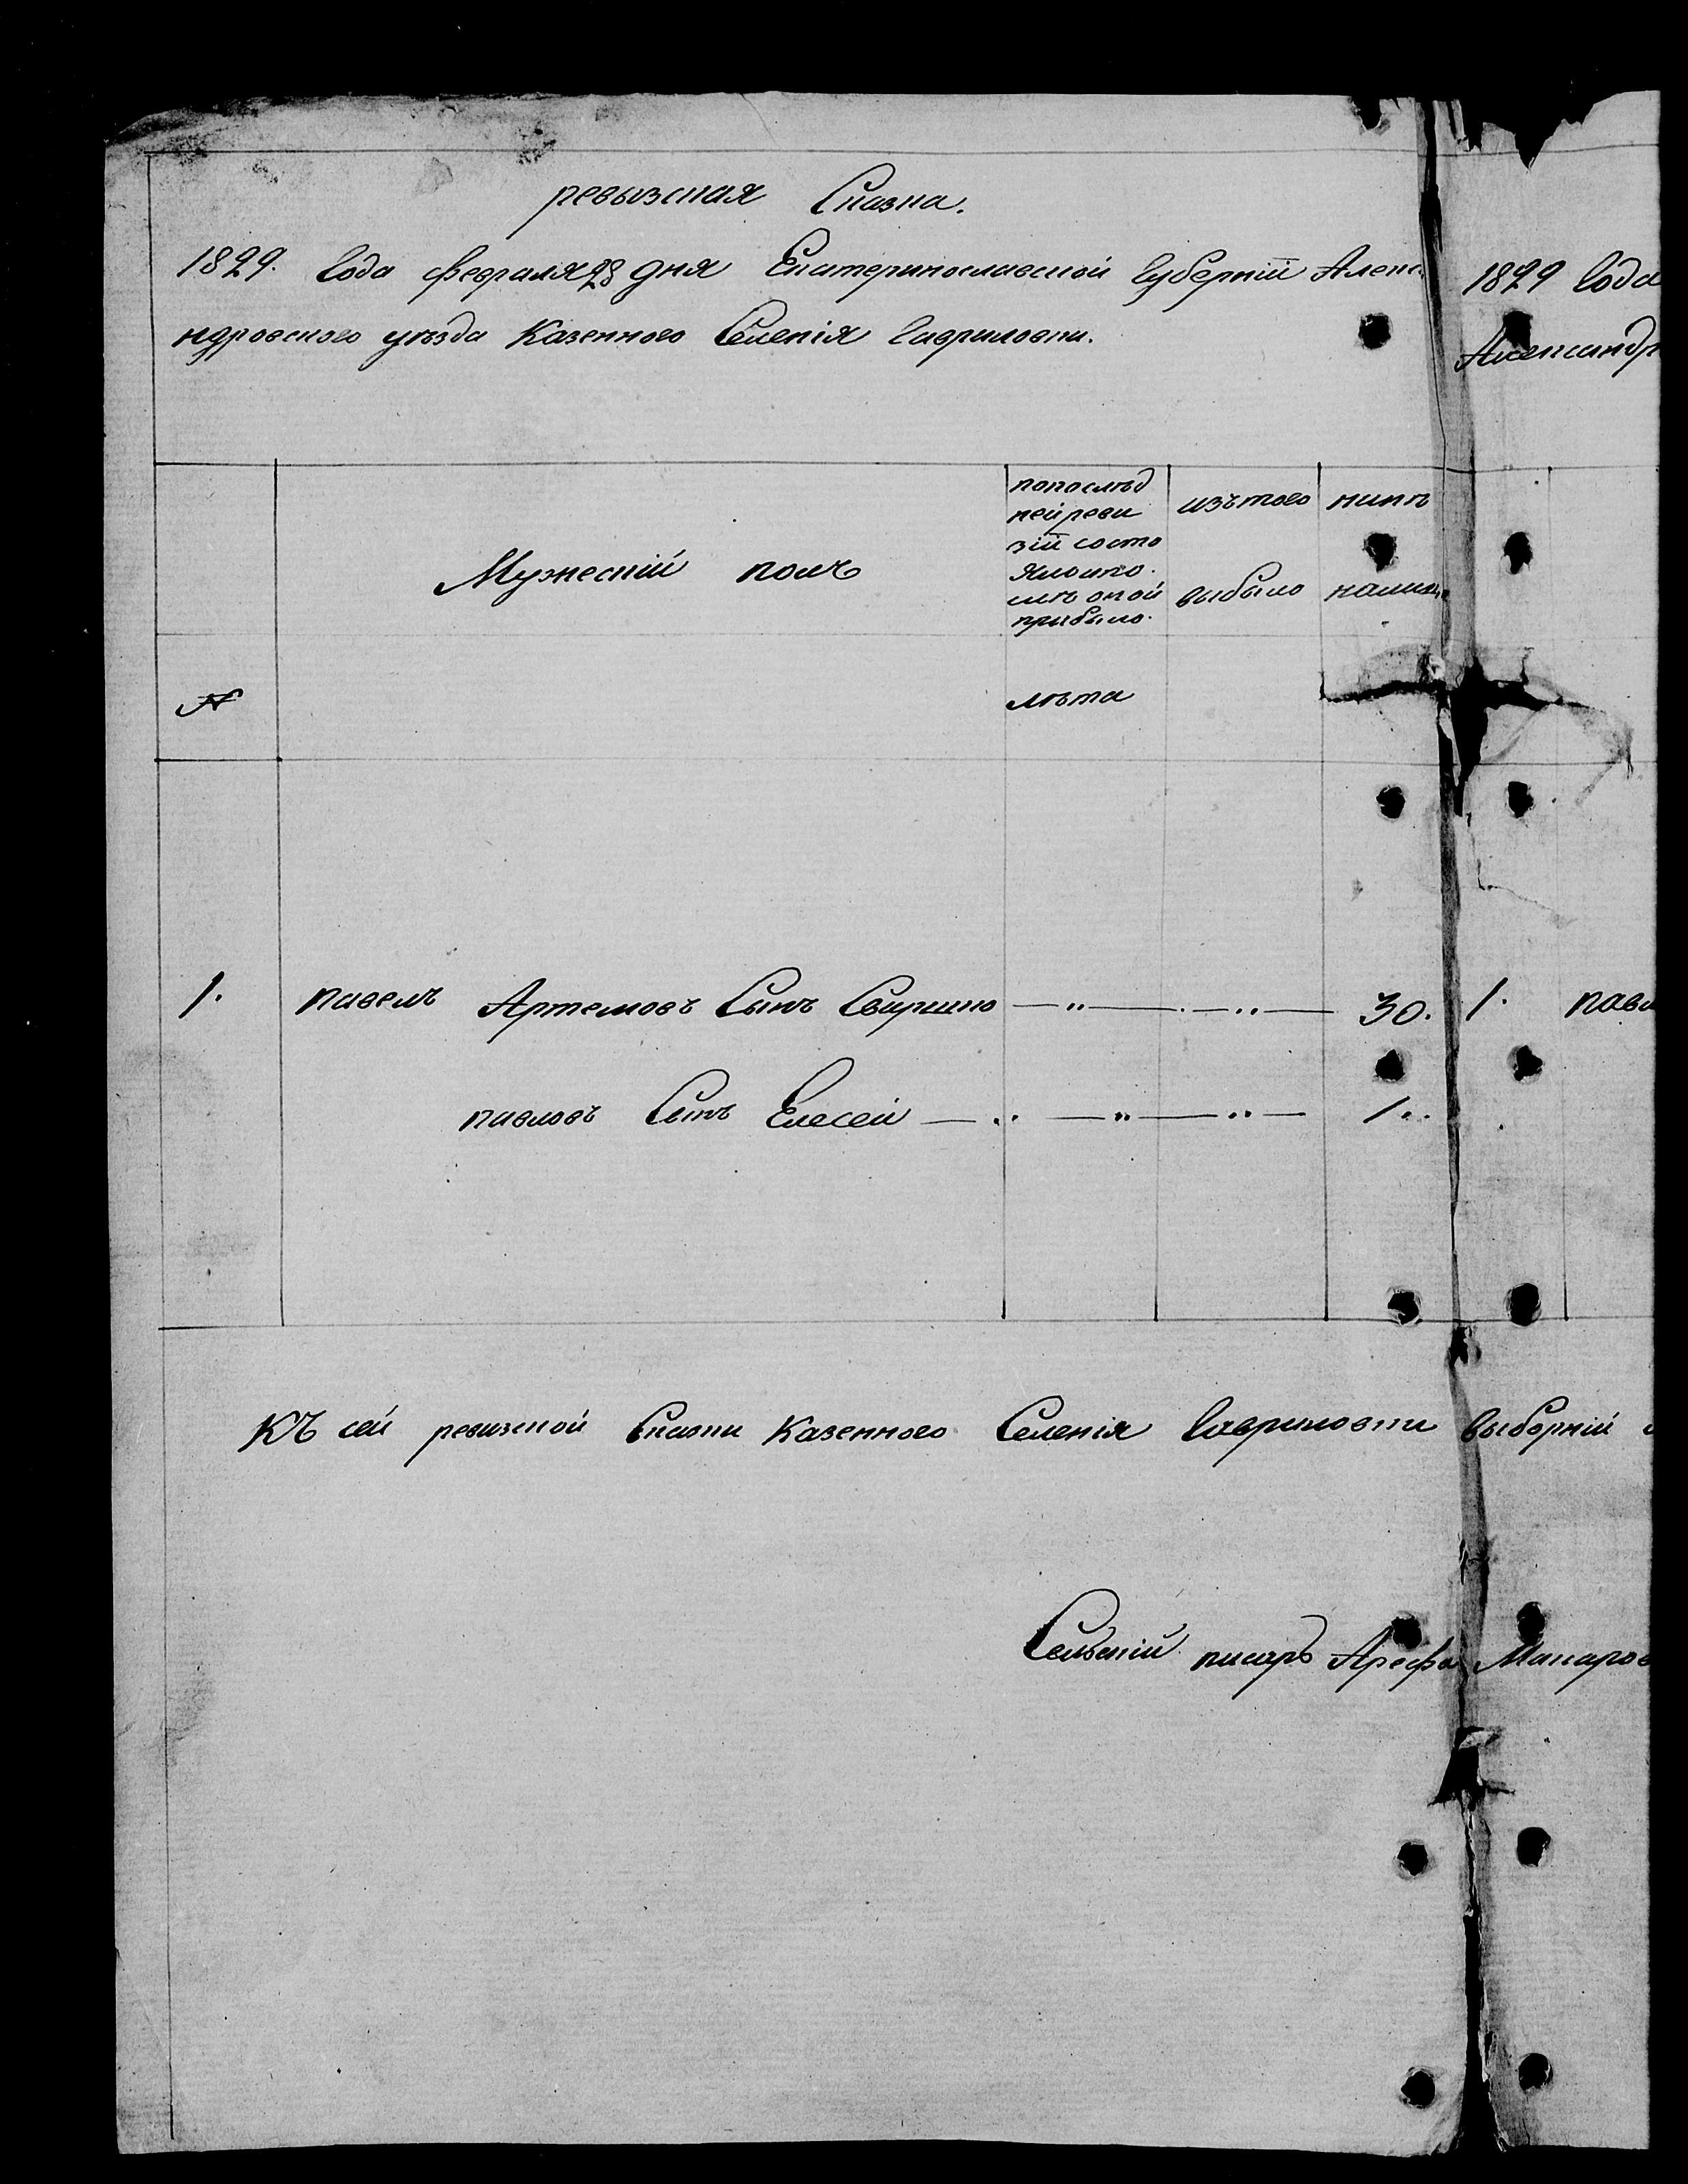 ревызская Сказка.
1829. Года февраля 28 дня Екатеринославской Губернїи Алекса
ндровского уѣзда Казенного Селенїя Гавриловки.
Мужескїй полъ
попослѣд
ней реви
зїи состо
яло ипо
слѣ оной
прибыло.
изъ того
выбыло
нинѣ
налице
№
лѣта
1. павелъ Артемовъ Сынъ Свиршко —〃— . —〃— 30.
павловъ Сынъ Елесей —〃—〃—〃— 1..
КЪ сей ревизской Сказки Казенного Селенїя Гавриловки выборнїй
Селскїй писарь Арефа Макаров
1829 Года
Александр
1. павл